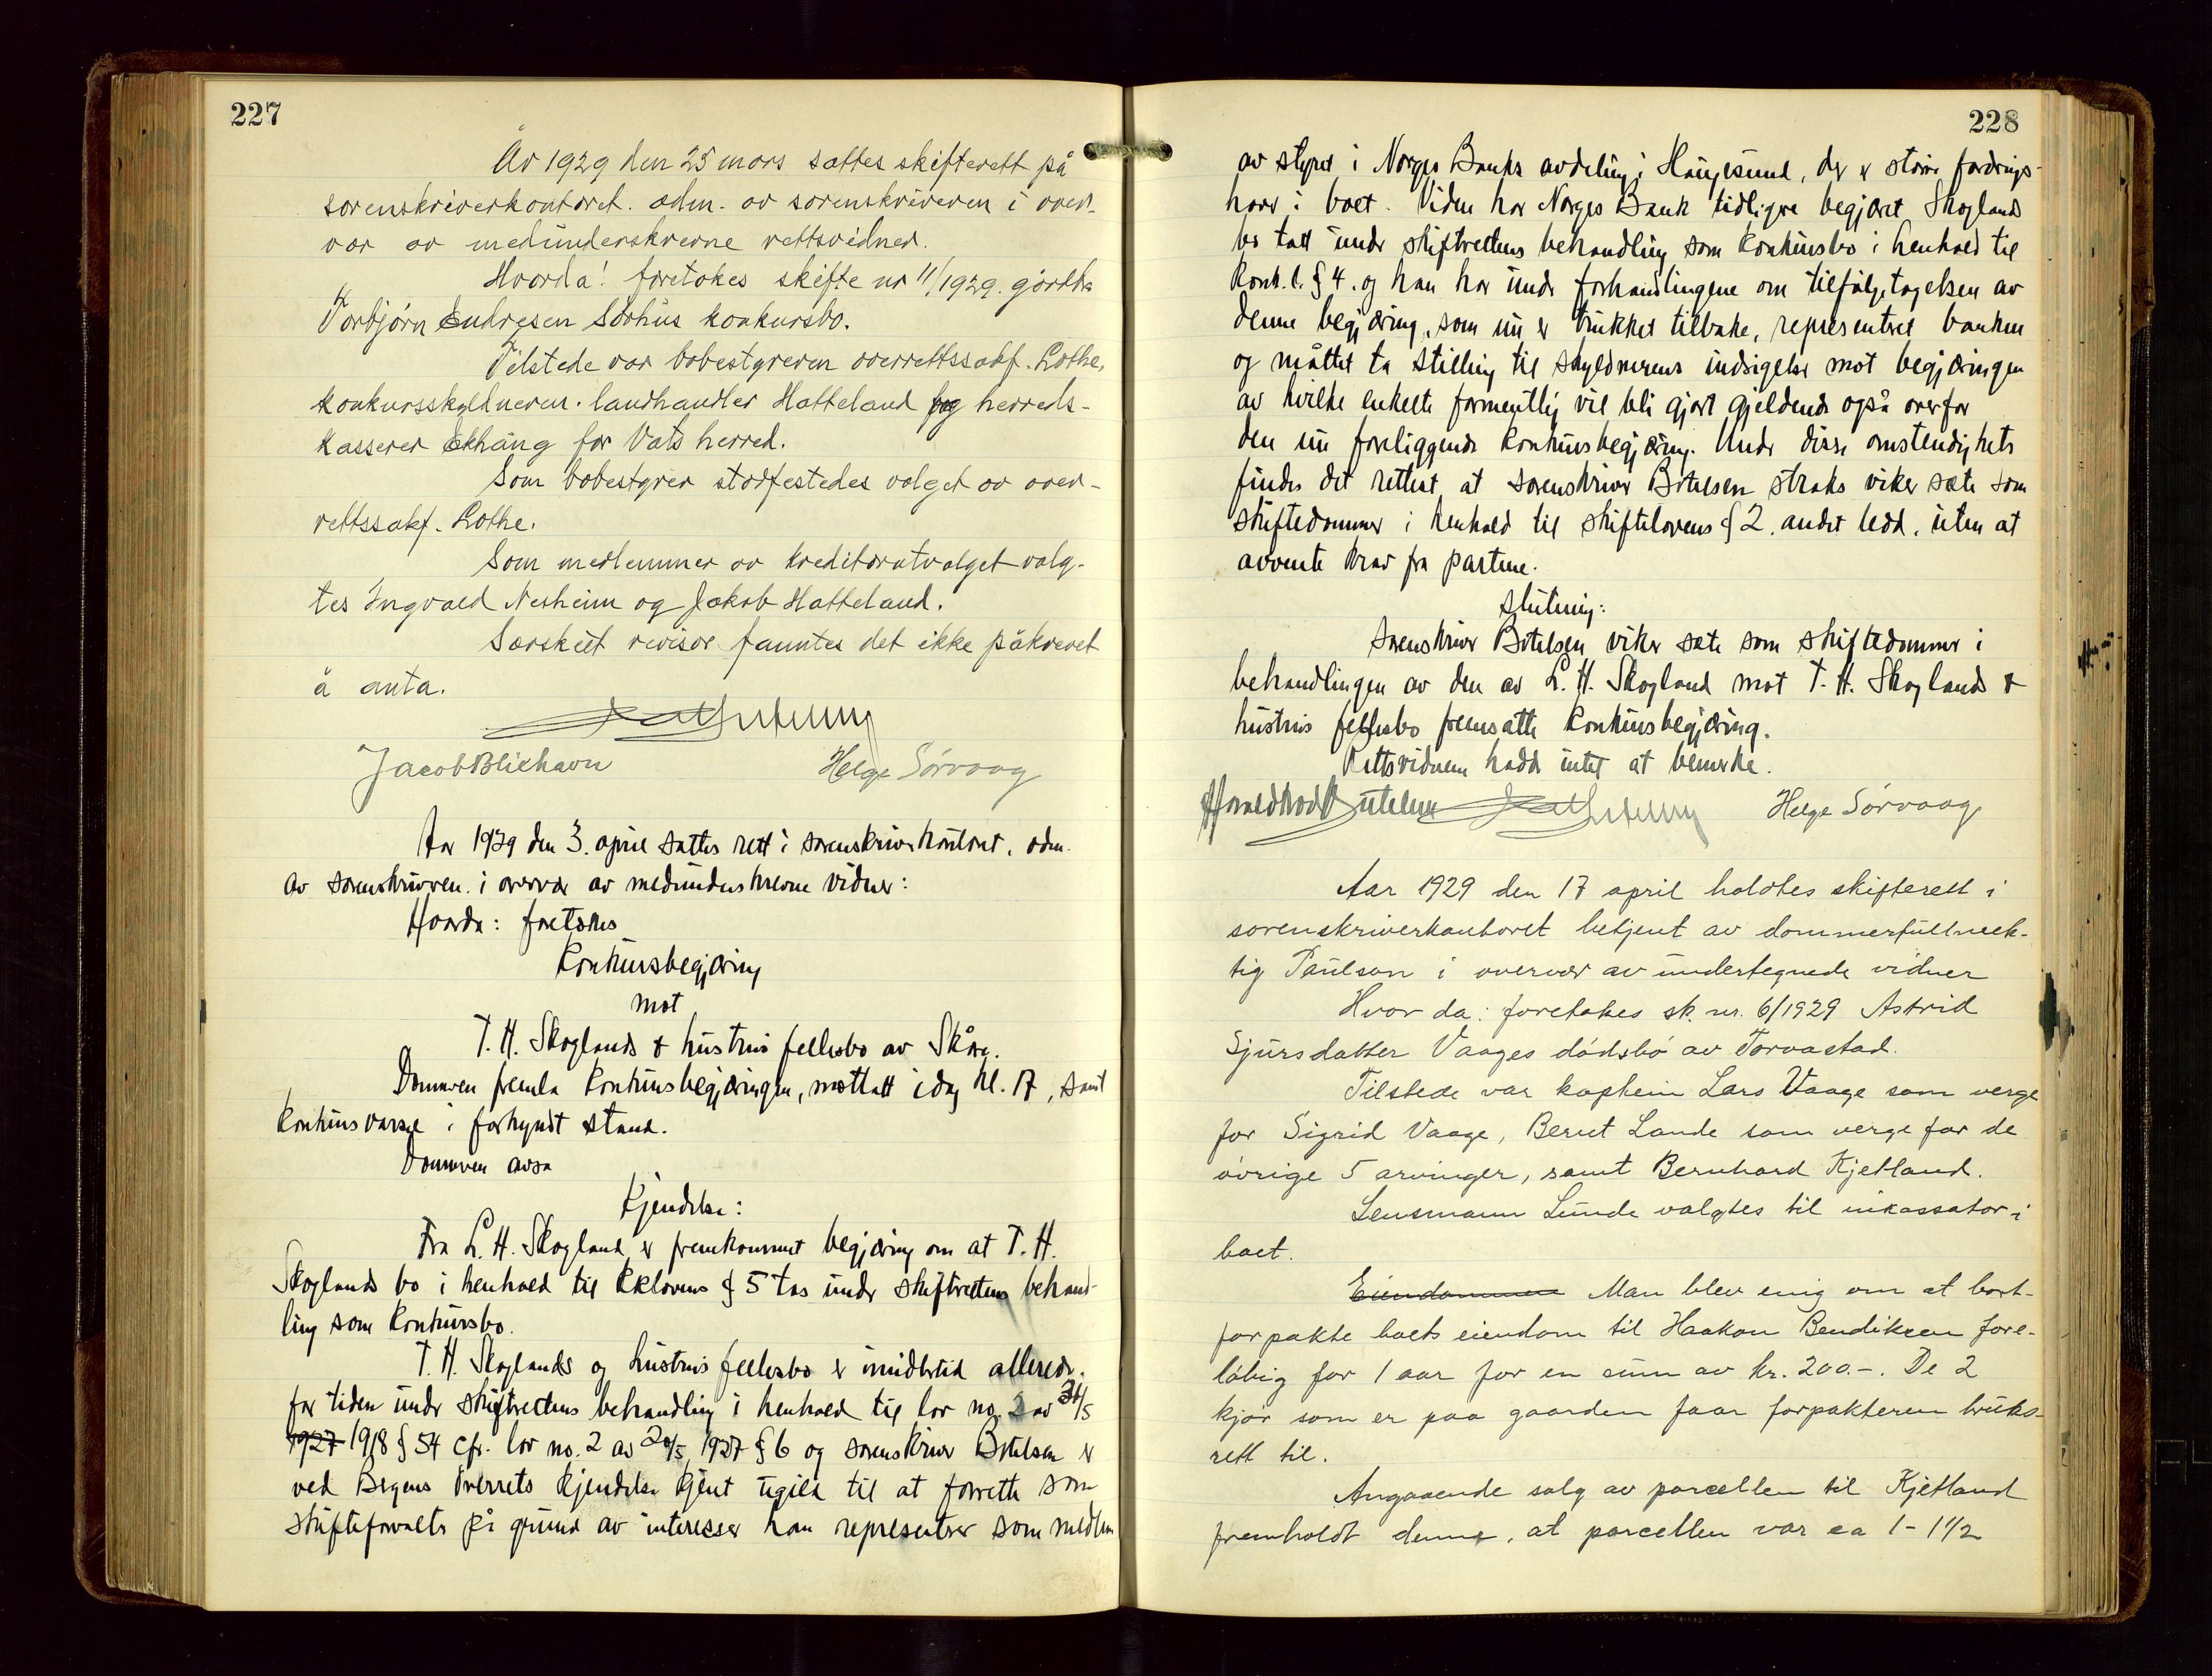 227
År 1929 den 25 mars sattes skifterett på
sorenskriverkontoret. adm. av sorenskriveren i over-
vær av medunderskrevne rettsvidner.
Hvorda! foretokes skifte nr 11/1929. gårdbr
Torbjörn Endresen Sörhus konkursbo.
Tilstede var bobestyreren overrettssakf. Lothe,
konkursskyldneren. landhandler Hatteland og herreds-
kasserer Ekhaug for Vats herred.
Som bobestyrer stadfestedes valget av over-
rettssakf. Lothe.
Som medlemmer av kreditorutvalget valg-
tes Ingvald Nesheim og Jakob Hatteland.
Særskilt revisor fanntes det ikke påkrevet
å anta.
Jacob Bliehavn Helge Sørvaag
Aar 1929 den 3. april sattes rett i sorenskriverkontoret, adm.
av sorenskriveren i overvær av medunderskrevne vidner:
Hvorda: foretokes
Konkursbegjæring
mot
T. H. Skoglands & hustrus fellesbo av Skåre.
Dommeren fremla konkursbegjæringen, mottatt idag kl. 17, samt
konkursvarsel i forkyndt stand.
Dommeren avsa
Kjendelse:
Fra L. H. Skogland er fremkommet begjæring om at T. H.
Skoglands bo i henhold til kklovens § 5 tas under skifterettens behand-
ling som konkursbo.
T. H. Skoglands og hustrus fellesbo er imidlertid allerede
for tiden under skifterettens behandling i henhold til lov no. 2 av 31/5
1927 1918 § 54 cfr. lov no. 2 av 20/5 1927 § 6 og sorenskriver Botelsen er
ved Bergens Overrets kjendelse kjent ugild til at forrette som
skifteforvalter på grund av interesser han representerer som medlem
228
av styret i Norges Banks avdeling i Haugesund, der er större fordrings-
haver i boet. Videre har Norges Bank tidligere begjæret Skoglands
bo tatt under skifterettens behandling som konkursbo i henhold til
konk. l. § 4. og han har under forhandlingene om tilfølgetagelsen av
denne begjæring, som nu er trukket tilbake, representeret banken
og måttet ta stilling til skyldnerens indsigelse mot begjæringen
av hvilke enkelte formentlig vil bli gjort gjeldende også overfor
den nu foreliggende konkursbegjæring. Under disse omstendigheter
findes det rettest at sorenskriver Botelsen straks viker sæte som
skiftedommer i henhold til skiftelovens § 2, andet ledd, uten at
avvente krav fra partene.
Slutning:
Sorenskriver Botelsen viker sæte som skiftedommer i
behandlingen av den av L. H. Skogland mot T. H. Skoglands &
hustrus fellesbo fremsatte konkursbegjæring.
Rettsvidnene hadde intet at bemerke.
Helge Sørvaag
Aar 1929 den 17 april holdtes skifterett i
sorenskriverkontoret betjent av dommerfullmek-
tig Paulson i overvær av undertegnede vidner
Hvor da: foretokes sk. nr. 6/1929 Astrid
Sjursdatter Vaages dødsbo av Torvastad.
Tilstede var kaptein Lars Vaage som verge
for Sigrid Vaage, Berret Lande som verge for de
övrige 5 arvinger, samt Bernhard Kjetland.
Lensmann Lunde valgtes til inkassator i
boet.
Eiendommen Man blev enig om at bort-
forpakte boets eiendom til Haakon Bendiksen fore-
löbig for 1 aar for en sum av kr. 200.-. De 2
kjør som er paa gaarden faar forpakteren bruks-
rett til.
Angaaende salg av parcellen til Kjetland
fremholdt denne, at parcellen var ca 1 - 1 1/2